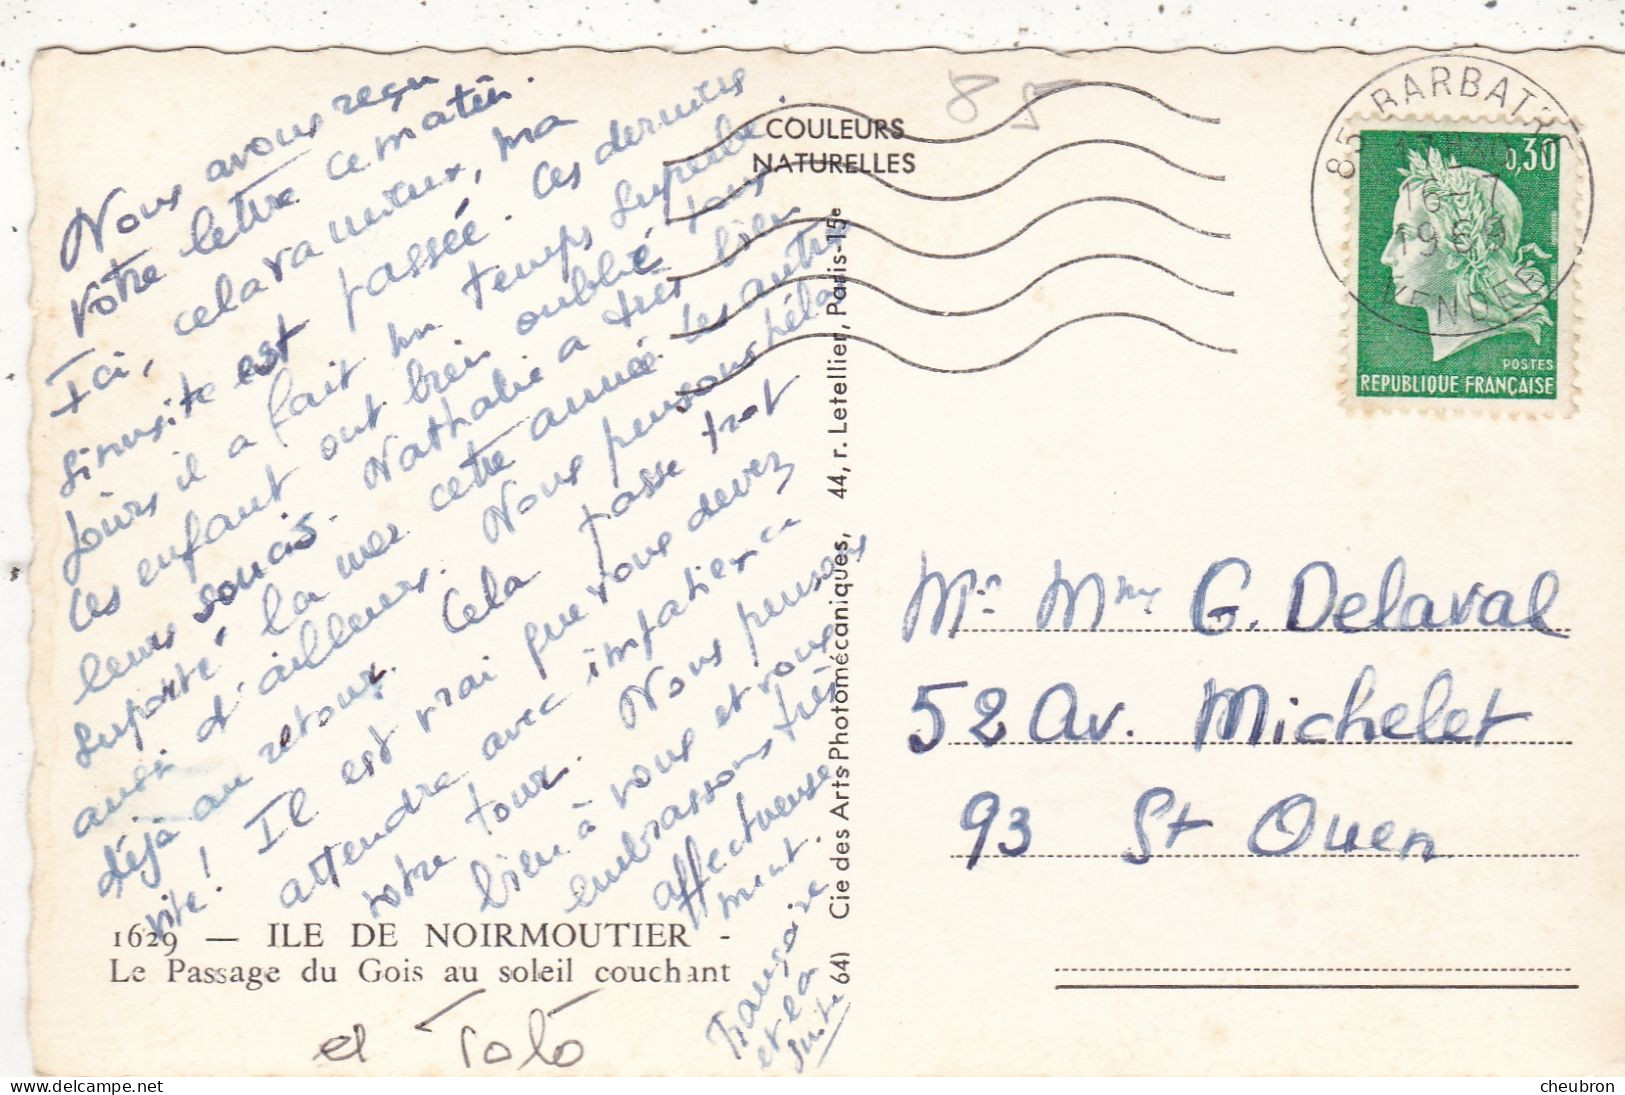 Nous avons reçu
votre lettre ce matin.
Ici, cela va mieux, ma
sinusite est passée. Ces dernières
jours il a fait un temps superbe.
Les enfant ont bien oublié tous
leurs soucis. Nathalie a très bien
supporté la mer cette année. Les autres
aussi d'ailleurs. Nous pensons hélas
déjà au retour. Cela passe trop
vite! Il est vrai que vous devez
attendre avec impatience
votre tour. Nous pensons
bien à vous et vous
embrassons très
affectueuse
ment.
Françoise
et la
suite
et Toto
1629 — ILE DE NOIRMOUTIER -
Le Passage du Gois au soleil couchant
COULEURS
NATURELLES
Cie des Arts Photomécaniques, 44, r. Letellier, Paris-15e
64)
85 BARBATRE
16-7
VENDEE
0,30
POSTES
REPUBLIQUE FRANÇAISE
Mr Mme G. Delaval
52 Av. Michelet
93 St Ouen
cheubron